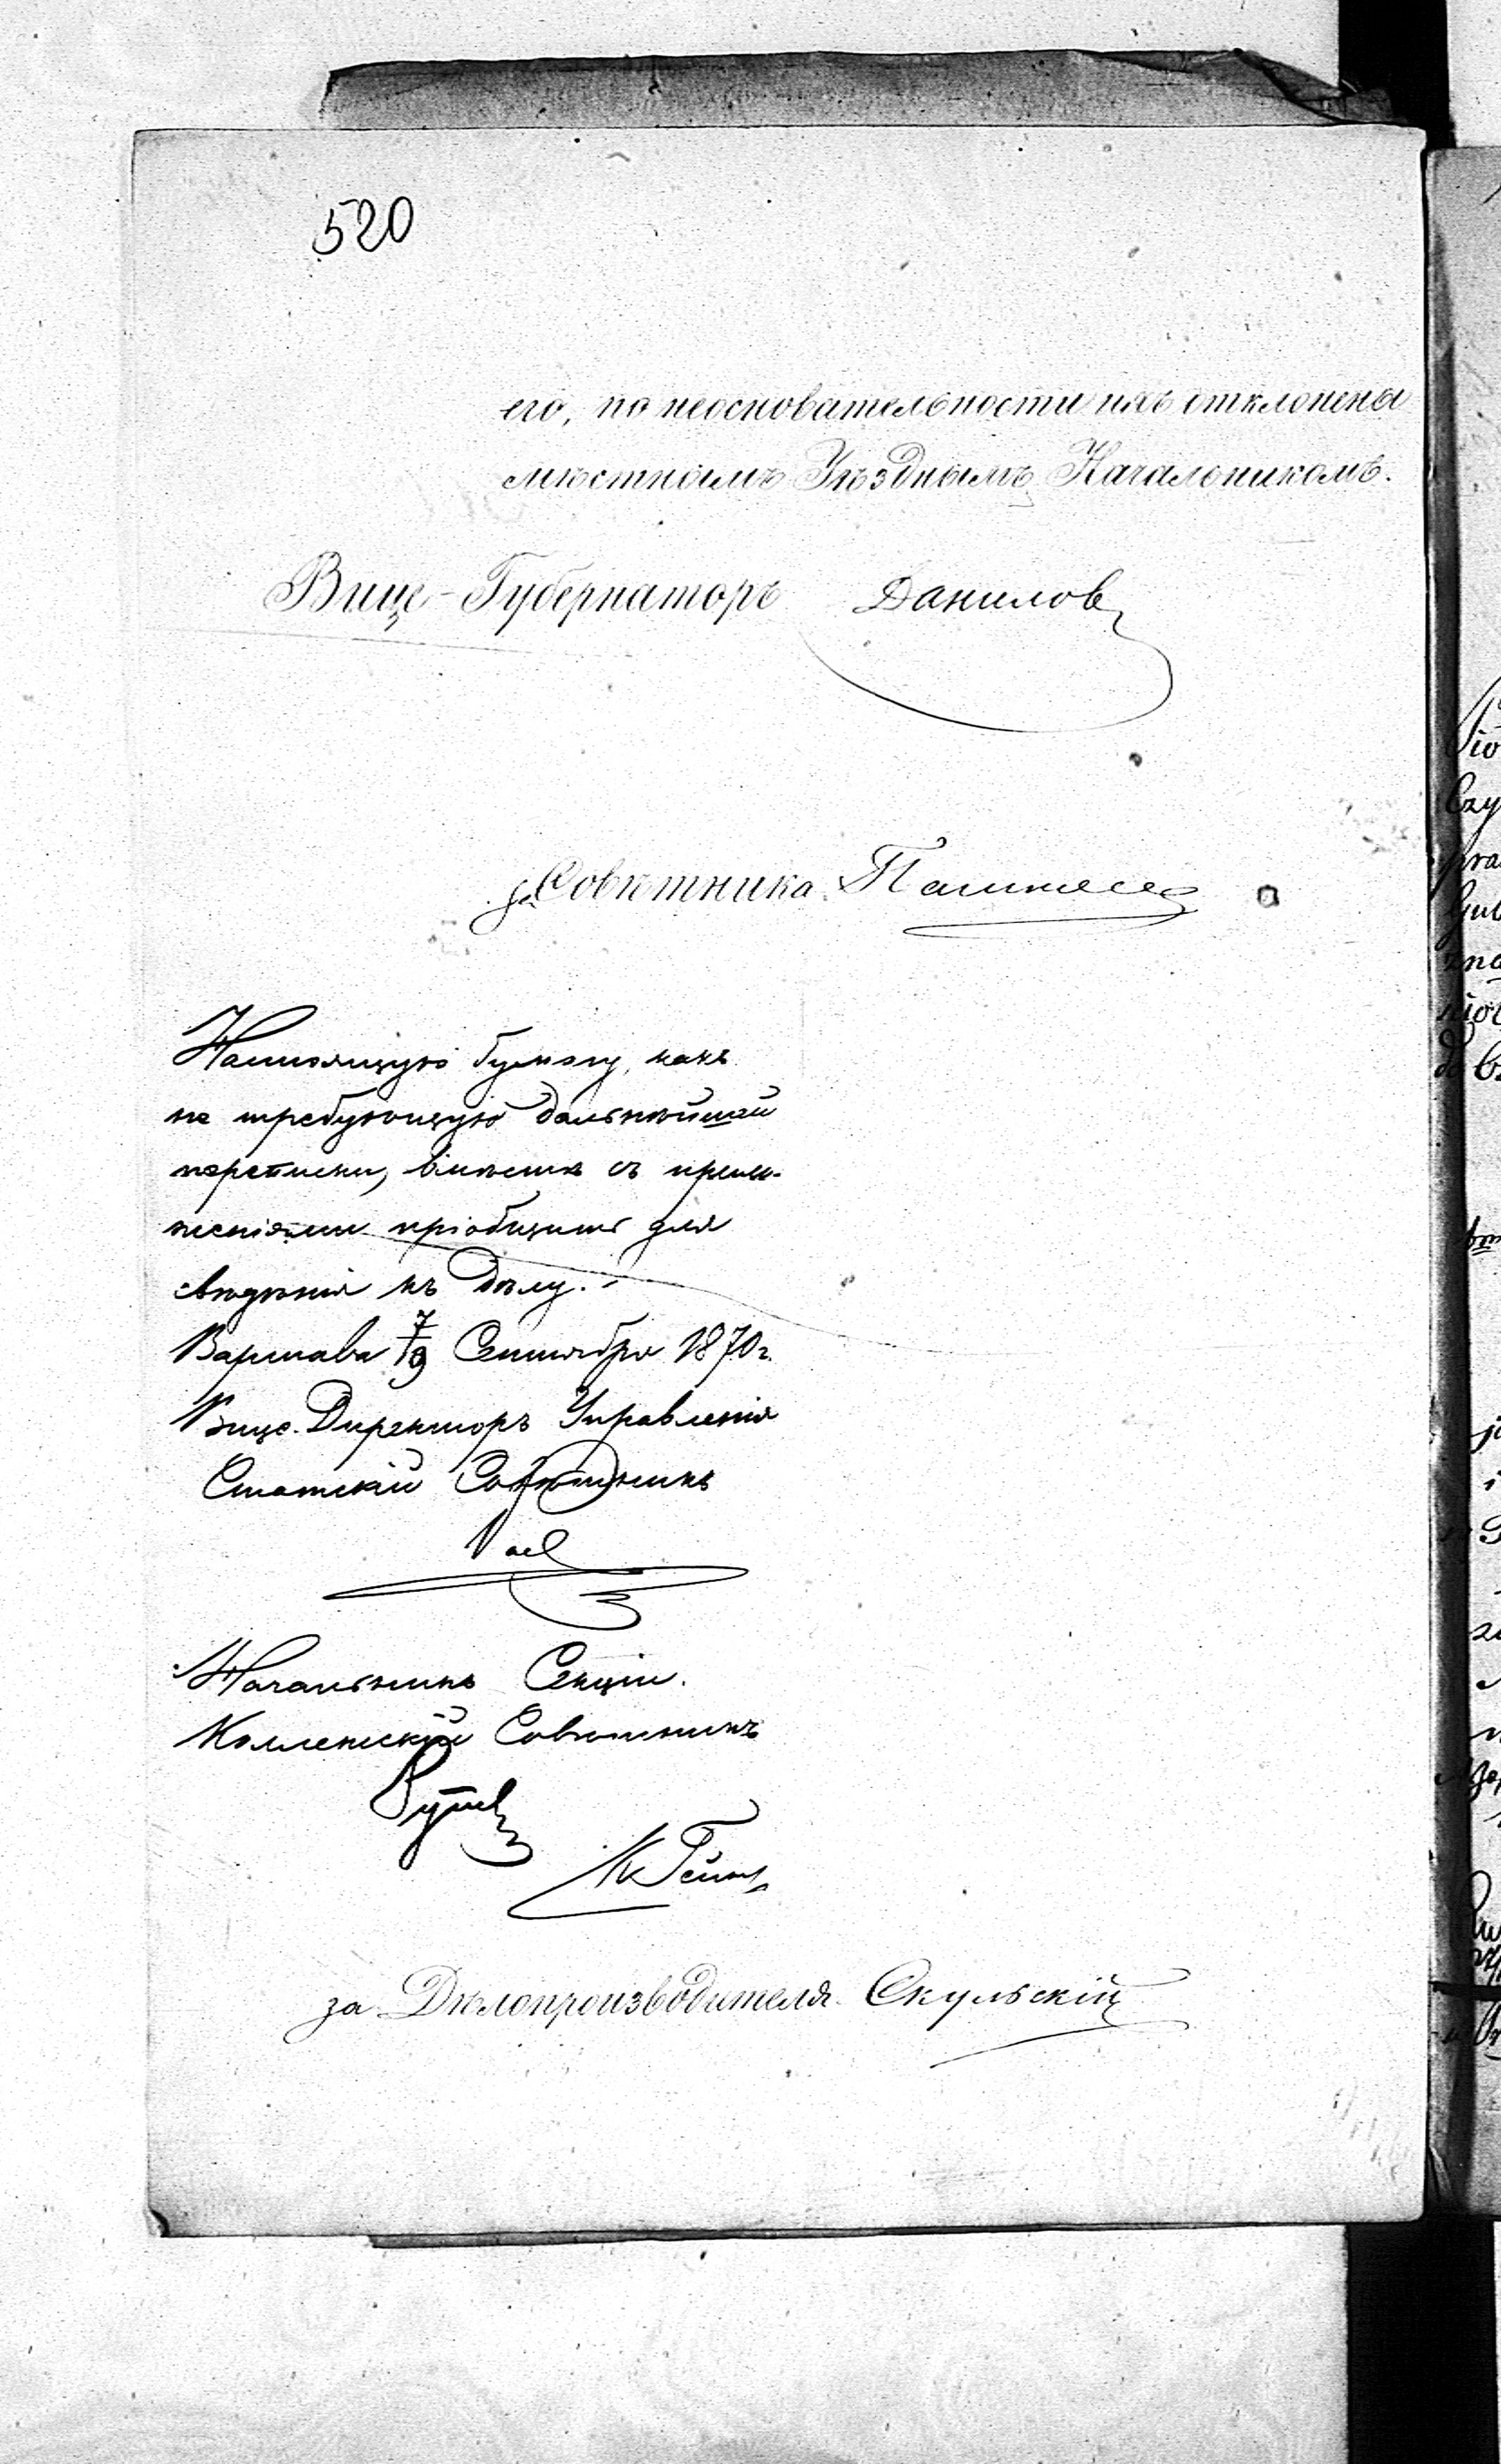 520
его, по неосновательности ихъ отклонены
мѣстнымъ Уѣзднымъ Начальникомъ.
Вице-Губернаторъ Данилов
за Совѣтника
Настоящую бумагу, какъ
не требующую дальнѣйшей
переписки, вмѣстѣ съ прило-
женіями пріобщить для
свѣдѣнія къ дѣлу.
Варшава 7/19 Сентября 1870 г.
Вице-Директоръ Управленія
Статскій Совѣтникъ
Начальникъ Секціи.
Коллежскій Совѣтникъ
за Дѣлопроизводителя Скульскій